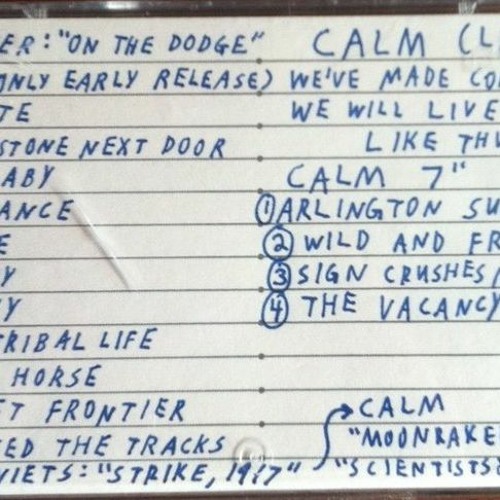 ER: "ON THE DODGE"
ONLY EARLY RELEASE)
TE
STONE NEXT DOOR
ABY
ANCE
E
Y
Y
TRIBAL LIFE
HORSE
ET FRONTIER
ED THE TRACKS
VIETS: "STRIKE, 1917"
CALM (L
WE'VE MADE CO
WE WILL LIVE
LIKE THU
CALM 7"
① ARLINGTON SU
② WILD AND FR
③ SIGN CRUSHES
④ THE VACANCY
CALM
"MOONRAKE
"SCIENTISTS